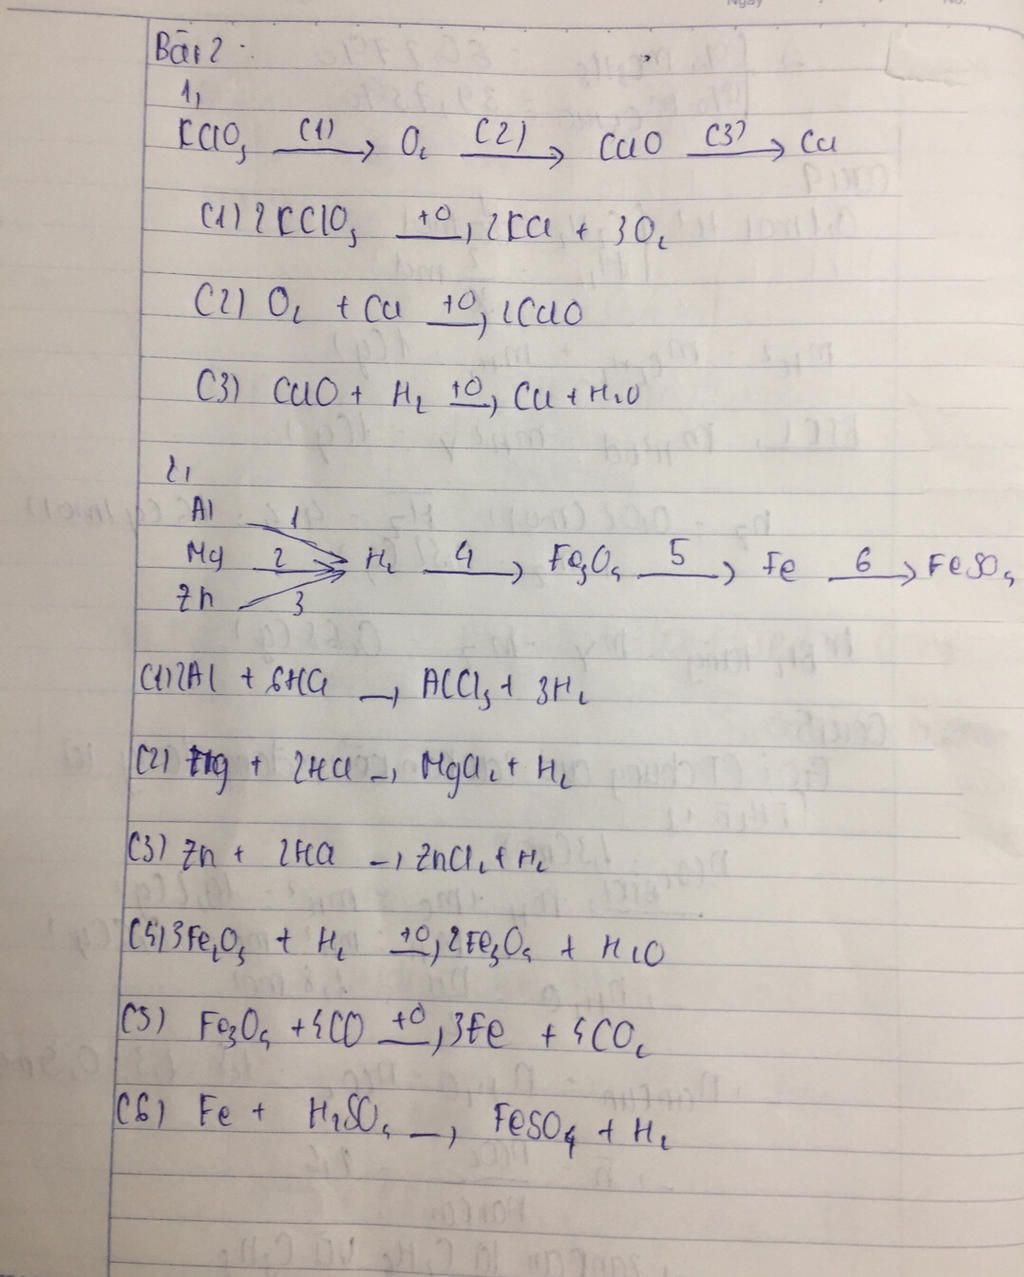 Bài 2:
1,
KClO₃ (1)→ O₂ (2)→ CuO (3)→ Cu
(1) 2KClO₃ +0→, 2KCl + 3O₂
(2) O₂ + Cu +0→, 2CuO
(3) CuO + H₂ +0→, Cu + H₂O
2,
Al 1
Mg 2→ H₂ 4→ Fe₃O₄ 5→ Fe 6→ FeSO₄
Zn 3
(1) 2Al + 6HCl →, AlCl₃ + 3H₂
(2) Mg + 2HCl →, MgCl₂ + H₂
(3) Zn + 2HCl →, ZnCl₂ + H₂
(4) 3Fe₂O₃ + H₂ +0→, 2Fe₃O₄ + H₂O
(5) Fe₃O₄ + 4CO +0→, 3Fe + 4CO₂
(6) Fe + H₂SO₄ →, FeSO₄ + H₂